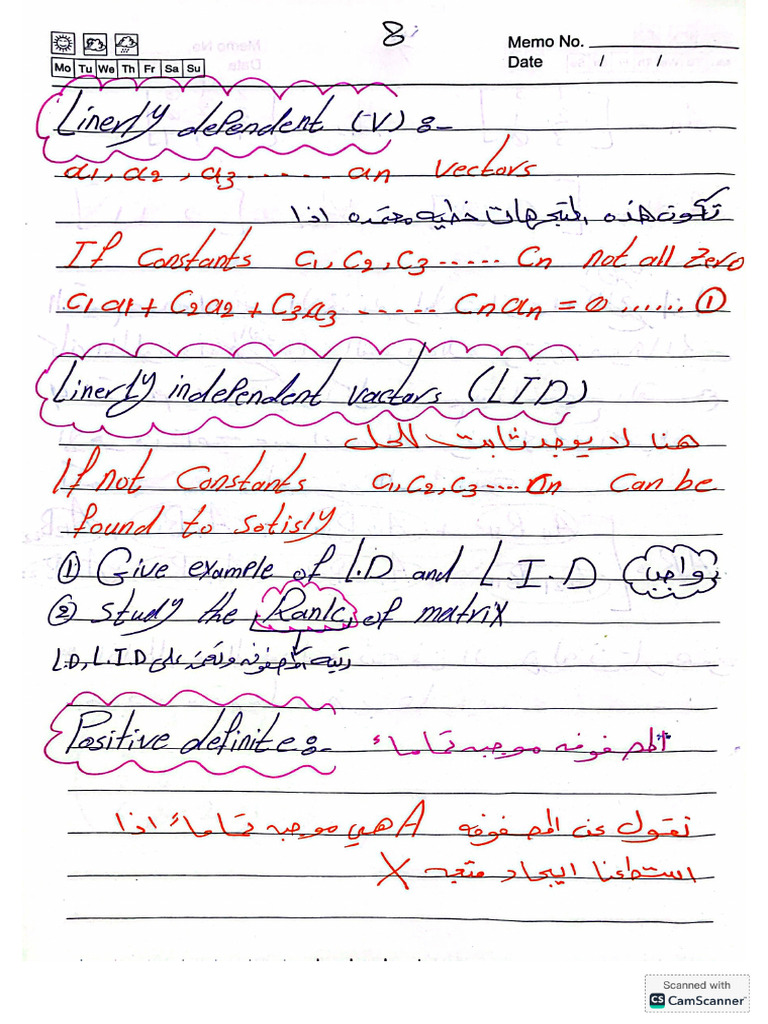 8
Memo No.
Date / /
Mo Tu We Th Fr Sa Su
Linerly dependent (V) :-
a1, a2, a3 ----- an vectors
تكون هذه المتجهات خطيه معتمده اذا
If Constants C1, C2, C3 ..... Cn not all Zero
C1a1 + C2a2 + C3a3 ----- Cnan = 0 ...... ①
Linerly independent vactors (LID)
هنا لا يوجد ثابت للحل
If not Constants C1, C2, C3 .... Cn Can be
found to sotisly
① Give example of L.D and L.I.D واجب
② Study the Rank of matrix
رتبه المصفوفه ونعتمد على L.D, L.I.D
Positive definite :- المصفوفه موجبه تماماً
نقول عن المصفوفه A هي موجبه تماماً اذا
استطعنا ايجاد متجه X
Scanned with
CS CamScanner